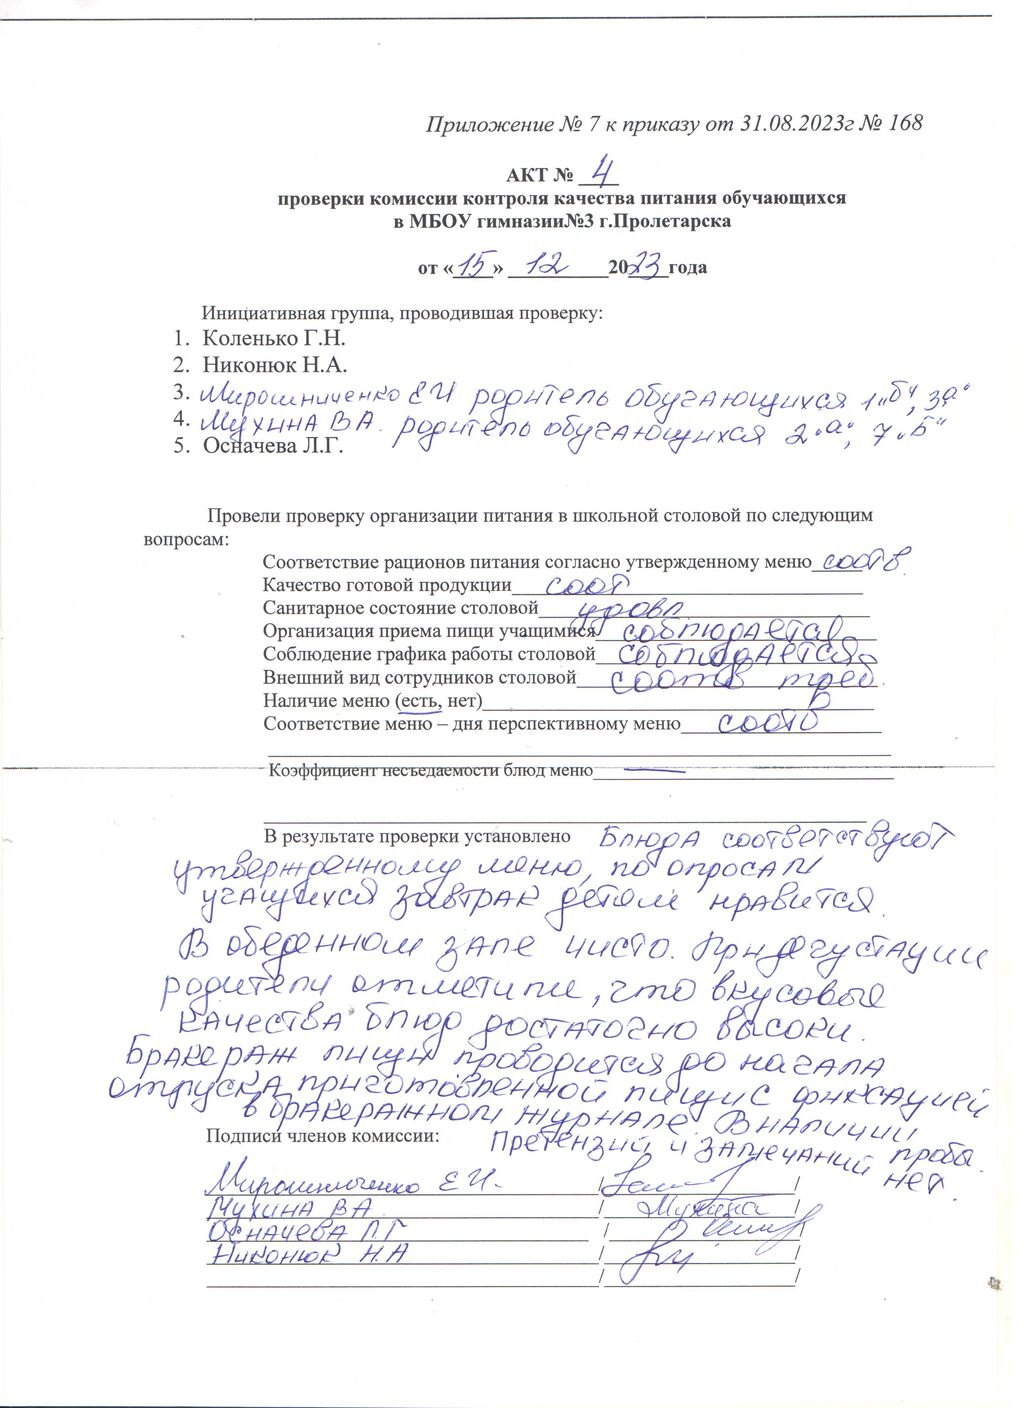 Приложение № 7 к приказу от 31.08.2023г № 168
АКТ № 4
проверки комиссии контроля качества питания обучающихся
в МБОУ гимназии№3 г.Пролетарска
от «15» 12 2023 года
Инициативная группа, проводившая проверку:
1. Коленько Г.Н.
2. Никонюк Н.А.
3. Мирошниченко ЕИ родитель обучающихся 1„б“, 3а“
4. Мухина ВА. родитель обучающихся 2„а“, 7„Б“
5. Осначева Л.Г.
Провели проверку организации питания в школьной столовой по следующим
вопросам:
Соответствие рационов питания согласно утвержденному меню соотв
Качество готовой продукции соот
Санитарное состояние столовой удовл.
Организация приема пищи учащимися соблюдается
Соблюдение графика работы столовой соблюдается
Внешний вид сотрудников столовой соотв треб.
Наличие меню (есть, нет)
Соответствие меню – дня перспективному меню соотв
Коэффициент несъедаемости блюд меню —
В результате проверки установлено Блюда соответствуют
утвержденному меню, по опросам
учащихся завтрак детям нравится.
В обеденном зале чисто. При дегустации
родители отметили, что вкусовые
качества блюд достаточно высоки.
Бракераж пищи проводится до начала
отпуска приготовленной пищи с фиксацией
в бракеражном журнале. В наличии пробы.
Подписи членов комиссии: Претензий и замечаний нет.
Мирошниченко Е.И. /
Мухина ВА / Мухина /
Осначева Л.Г /
Никонюк Н.А /